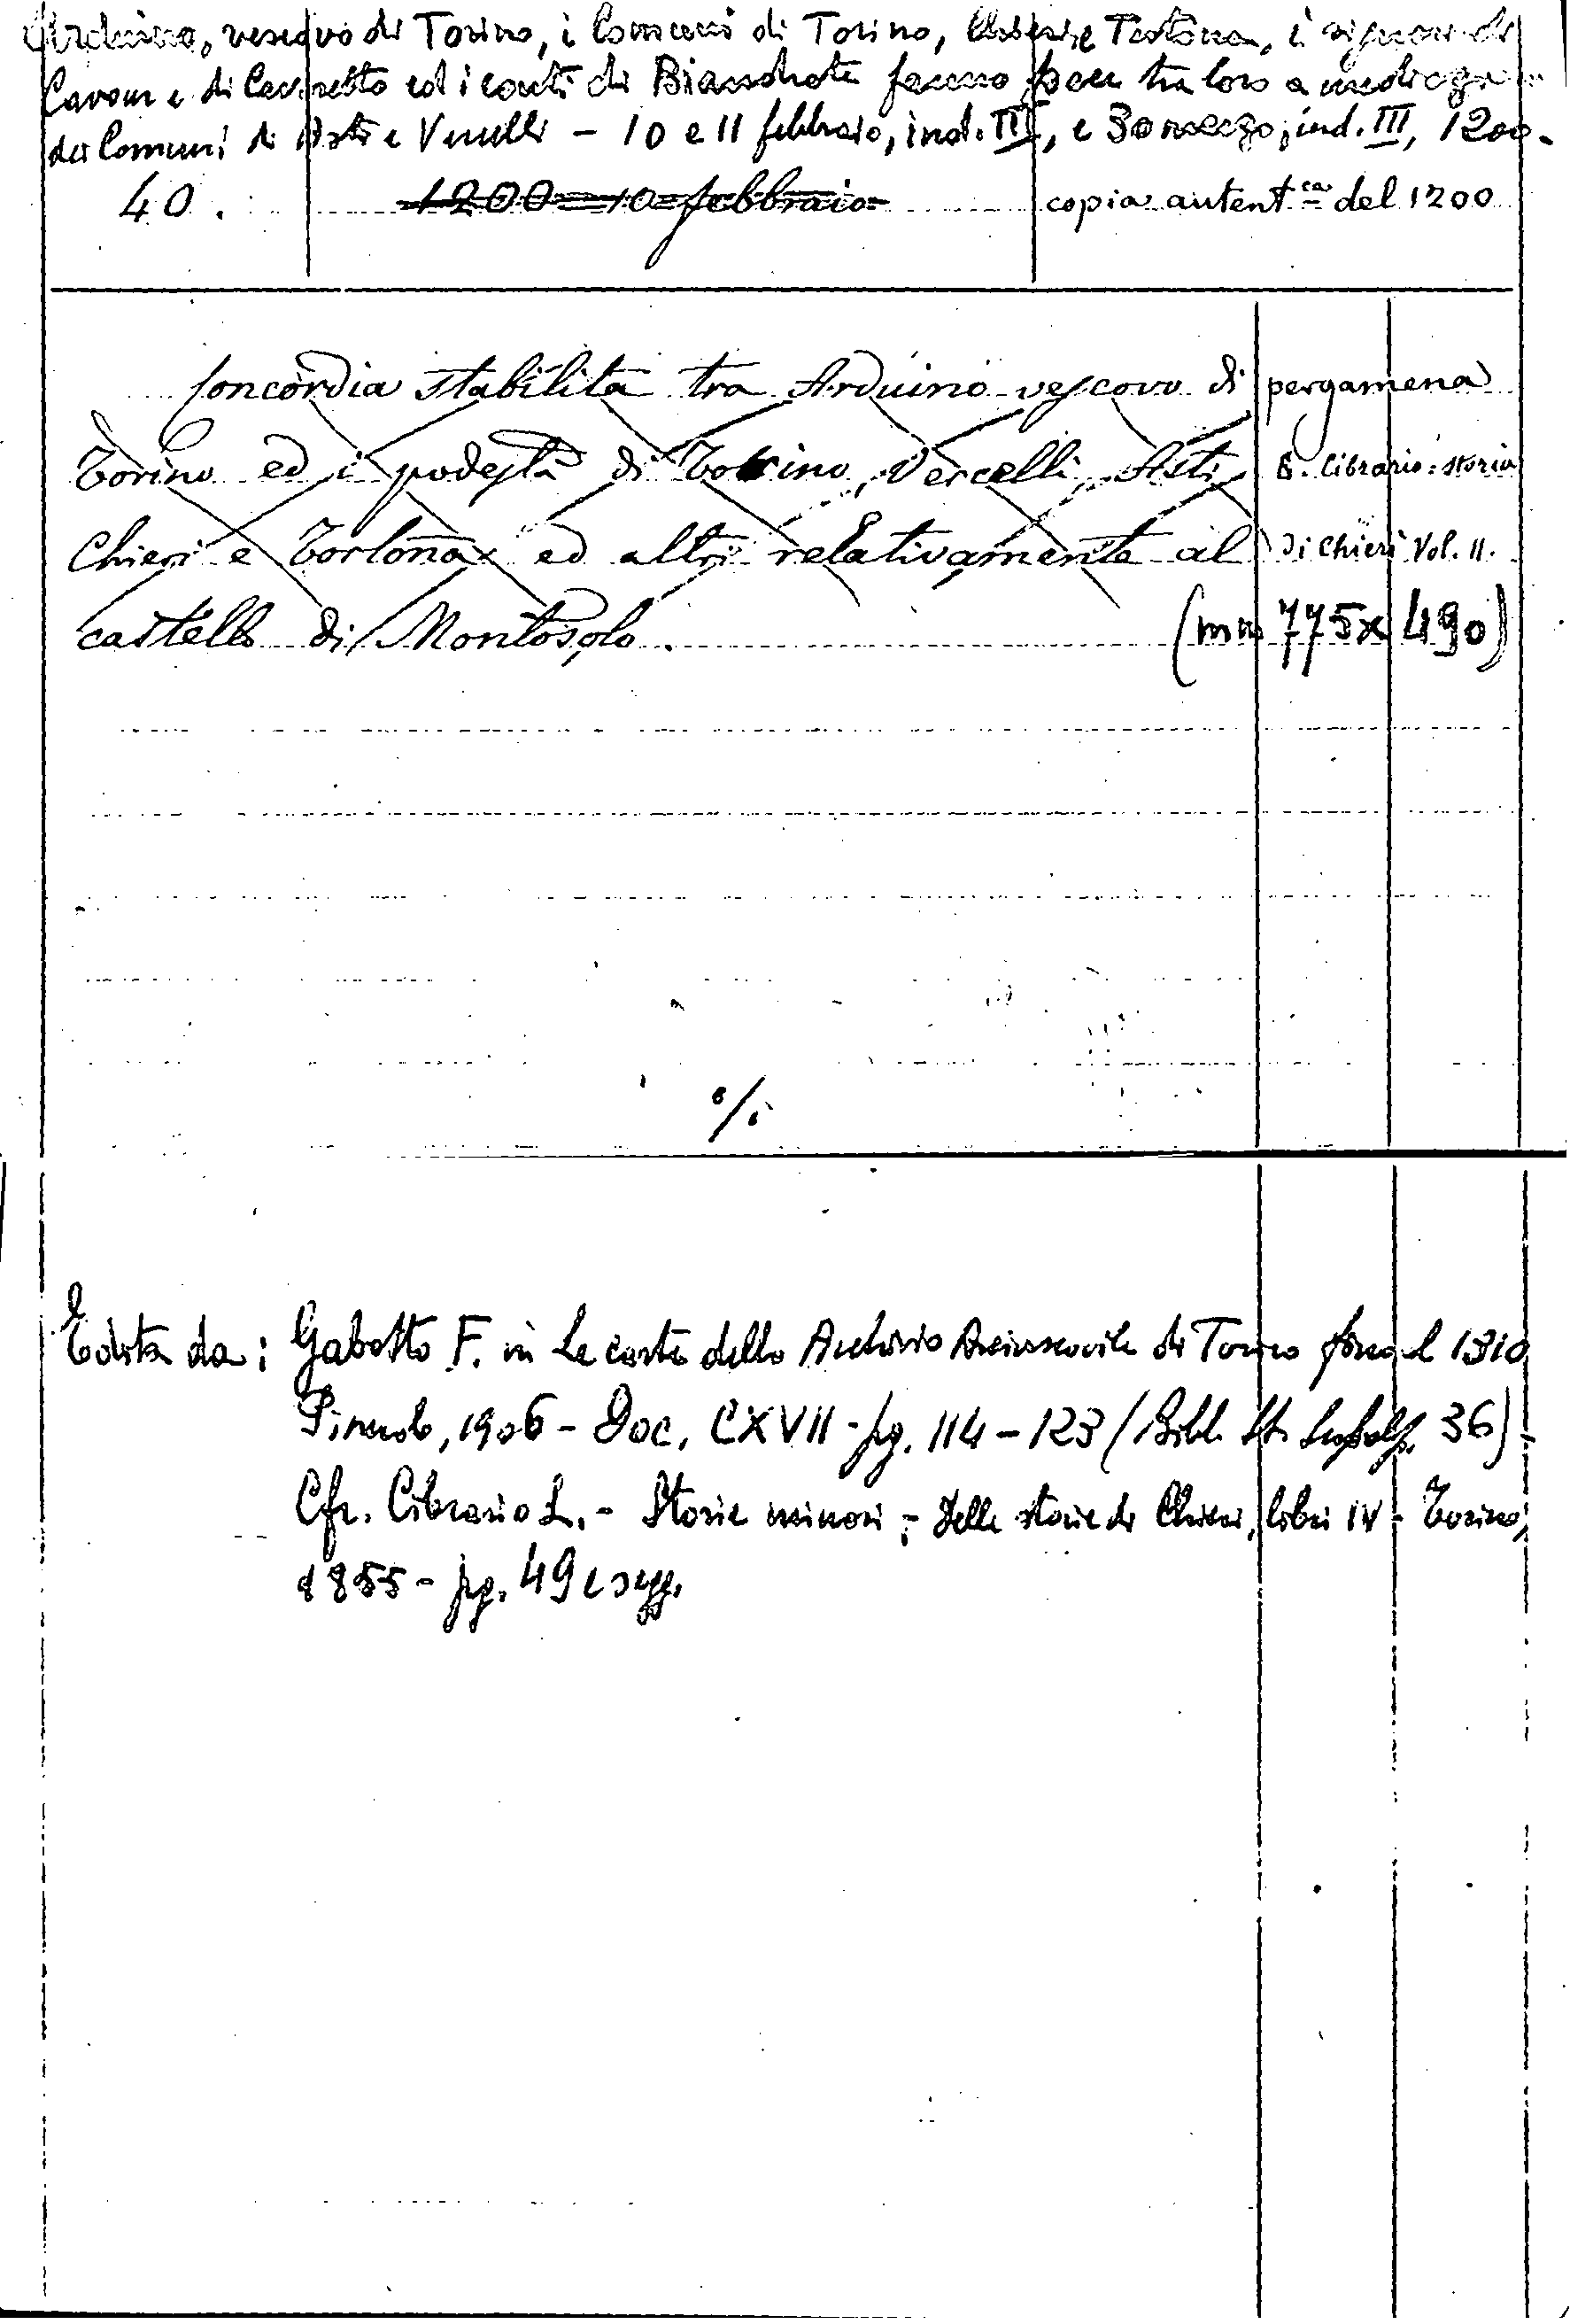 Arduino, vescovo di Torino, i Comuni di Torino, Chieri e Testona, i signori di
Cavour e di Cavoretto ed i conti di Biandrate fanno pace tra loro a mediazione
dei Comuni di Asti e Vercelli - 10 e 11 febbraio, ind. III, e 30 marzo, ind. III, 1200.
40. 1200 = 10 = febbraio copia autent.ca del 1200
Concordia stabilita tra Arduino vescovo di pergamena
Torino ed i podestà di Torino, Vercelli, Asti, Cibrario: storia
Chieri e Tortona ed altri relativamente al di Chieri Vol. II.
castello di Montosolo. (mm 775x490)
%
Edita da: Gabotto F. in Le carte dello Archivio Arcivescovile di Torino fino al 1310
Pinerolo, 1906 - Doc. CXVII - pg. 114-123 (Bibl. St. Subalp. 36)
Cfr. Cibrario L. - Storie minori - Delle storie di Chieri, libri IV - Torino,
1855 - pg. 49 e segg.